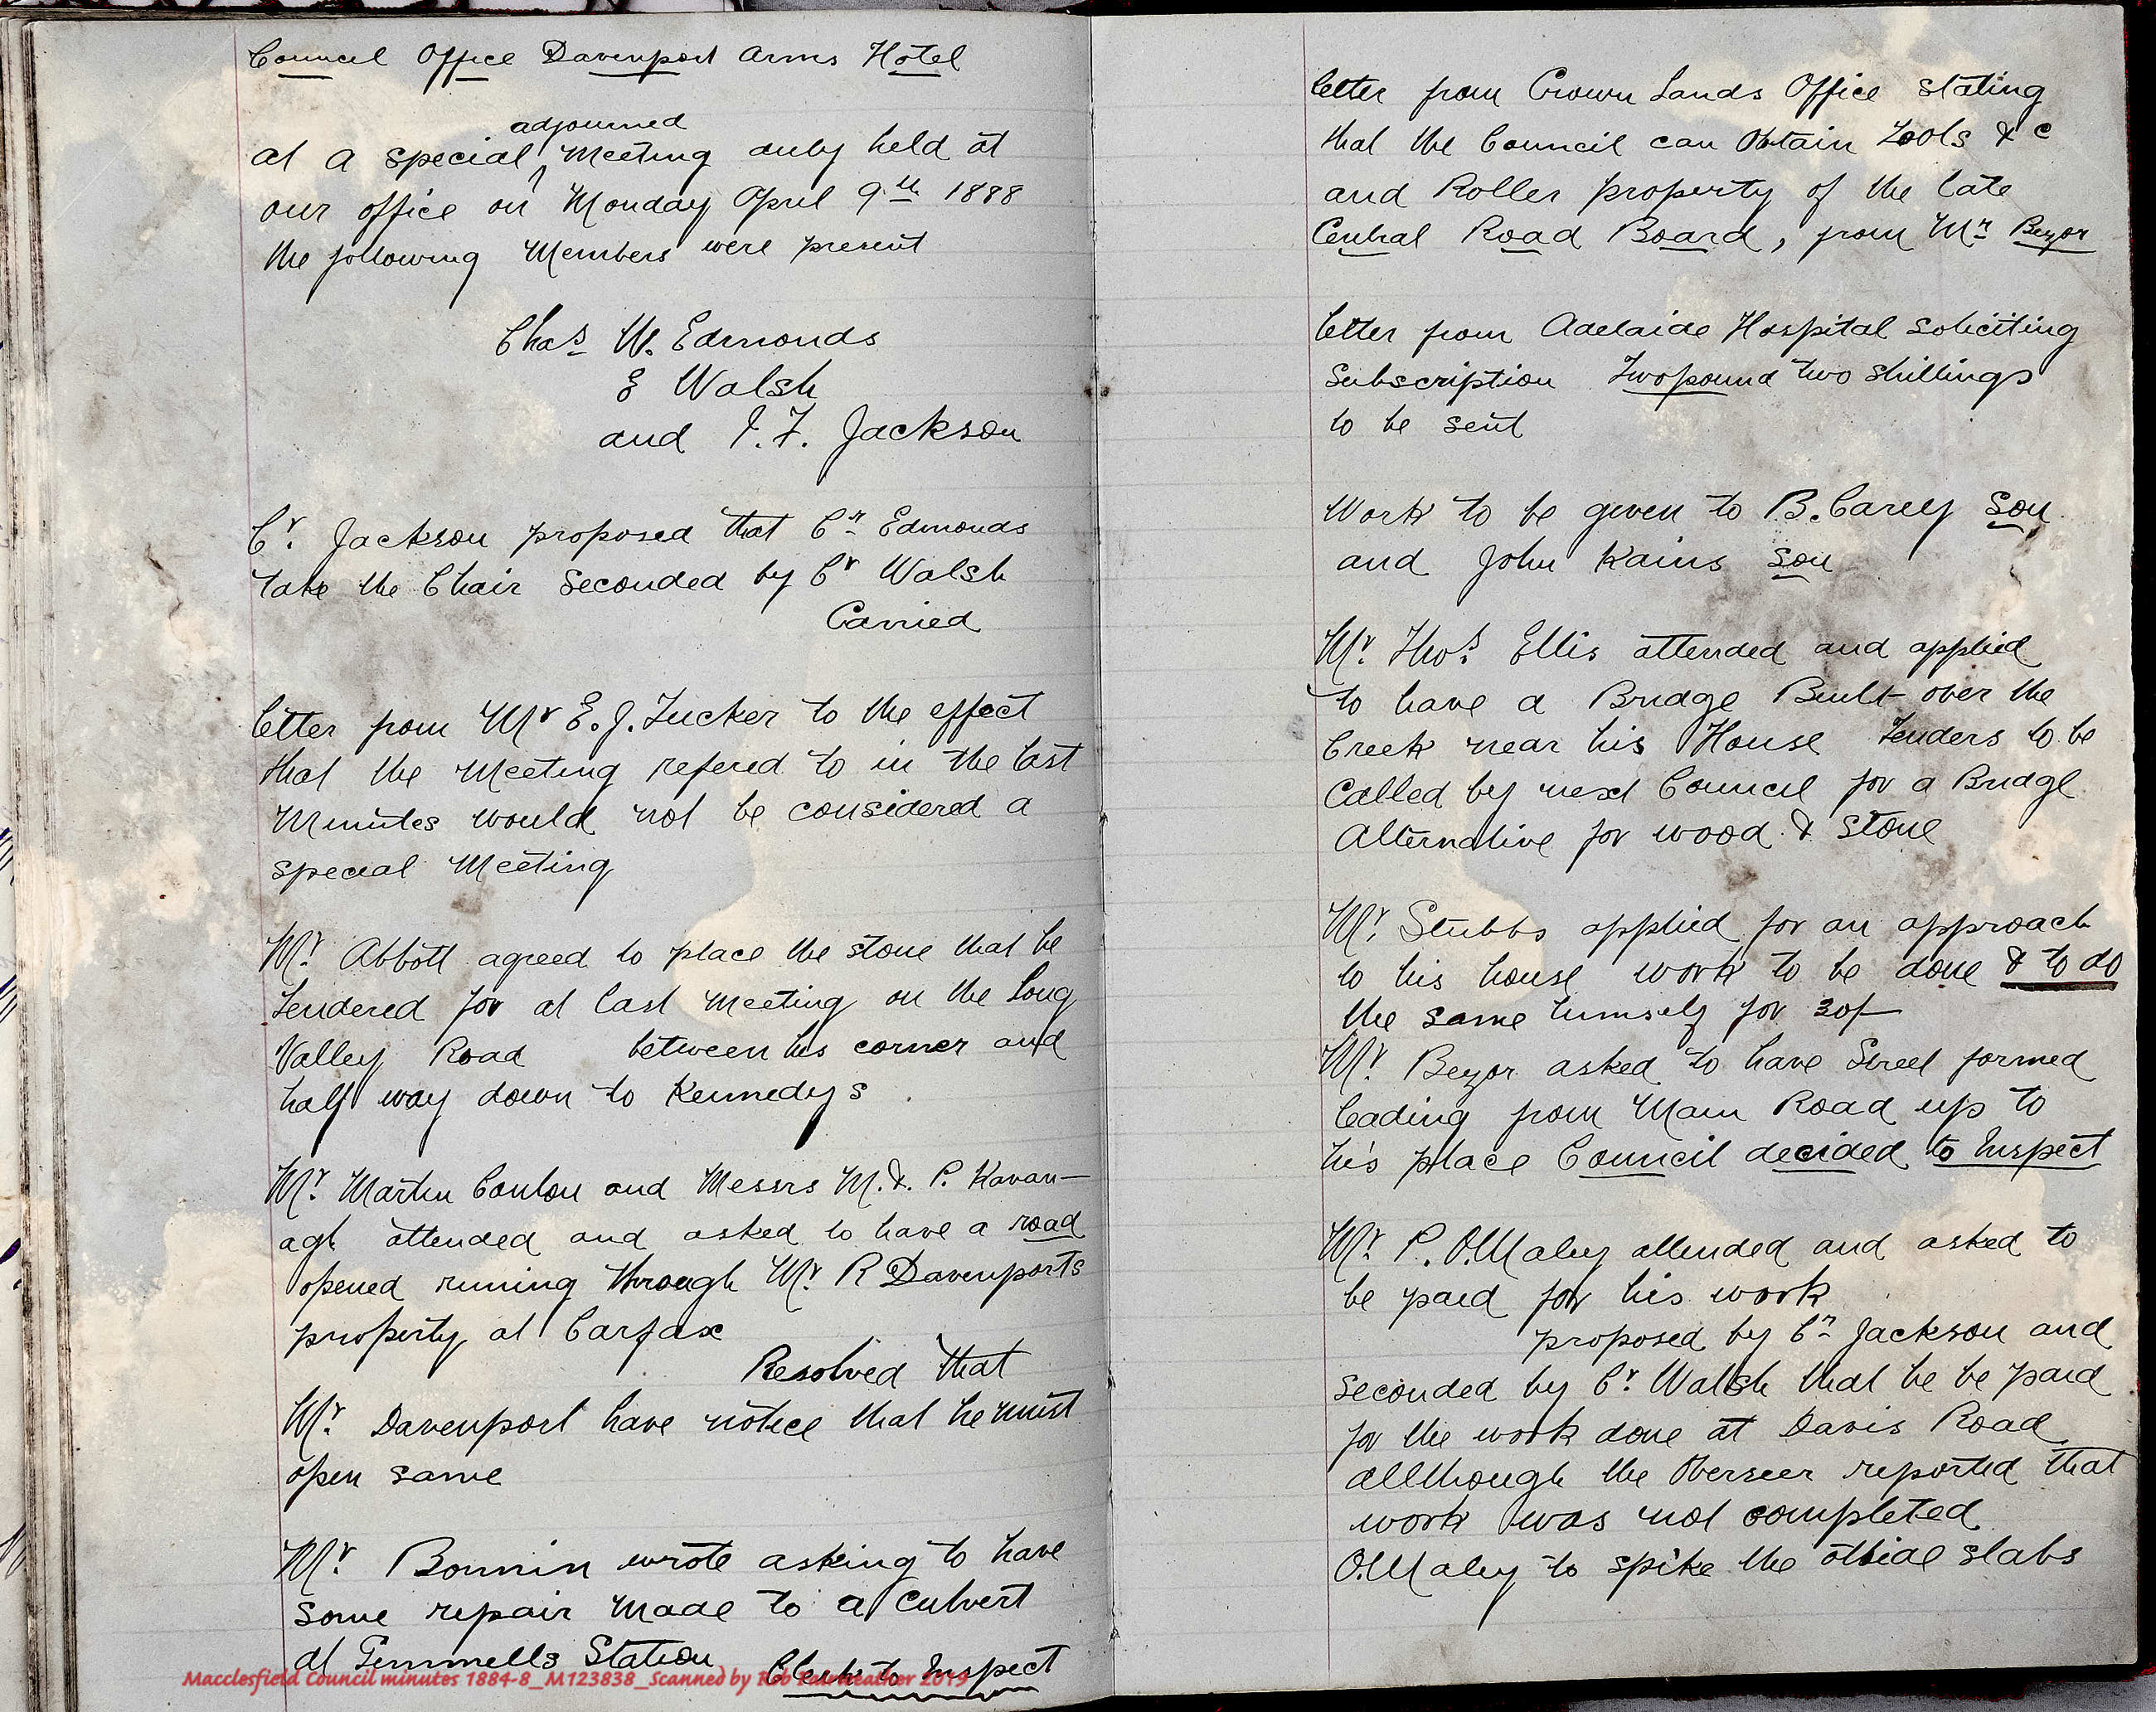 Council Office Davenport Arms Hotel
adjourned
At a special ^ Meeting duly held at
our office on Monday April 9th 1888
the following Members were present
Chas W. Edmonds
E Walsh
and I. F. Jackson
Cr. Jackson proposed that Cr Edmonds
take the Chair Seconded by Cr Walsh
Carried
letter from Mr E. J. Tucker to the effect
that the Meeting refered to in the last
Minutes would not be considered a
special Meeting
Mr. Abbott agreed to place the stone that he
tendered for at last Meeting on the Long
Valley Road between his corner and
half way down to Kennedys
Mr. Martin Conlon and Messrs M. & P. Kavan-
agh attended and asked to have a road
opened runing through Mr. R Davenports
property at Carfax
Resolved that
Mr. Davenport have notice that he must
open same
Mr. Bonnin wrote asking to have
some repair made to a Culvert
at Temmells Station Clerk to Inspect
Macclesfield Council minutes 1884-8_M123838_Scanned by Rob Fairweather 2019
letter from Crown Lands Office stating
that the Council can Obtain Tools & c
and Roller property of the late
Central Road Board, from Mr Beyor
letter from Adelaide Hospital soliciting
Subscription Two pound two shillings
to be sent
Work to be given to B. Carey Son
and John Kains Son
Mr. Thos. Ellis attended and applied
to have a Bridge Built over the
Creek near his House Tenders to be
Called by next Council for a Bridge
Alternative for wood & stone
Mr. Stubbs applied for an approach
to his house work to be done & to do
the same himself for 30/-
Mr. Beyor asked to have Street formed
leading from Main Road up to
his place Council decided to Inspect
Mr. P. O.Maley attended and asked to
be paid for his work
proposed by Cr Jackson and
seconded by Cr. Walsh that he be paid
for the work done at Davis Road
allthough the Overseer reported that
work was not completed
O.Maley to spike the slabs